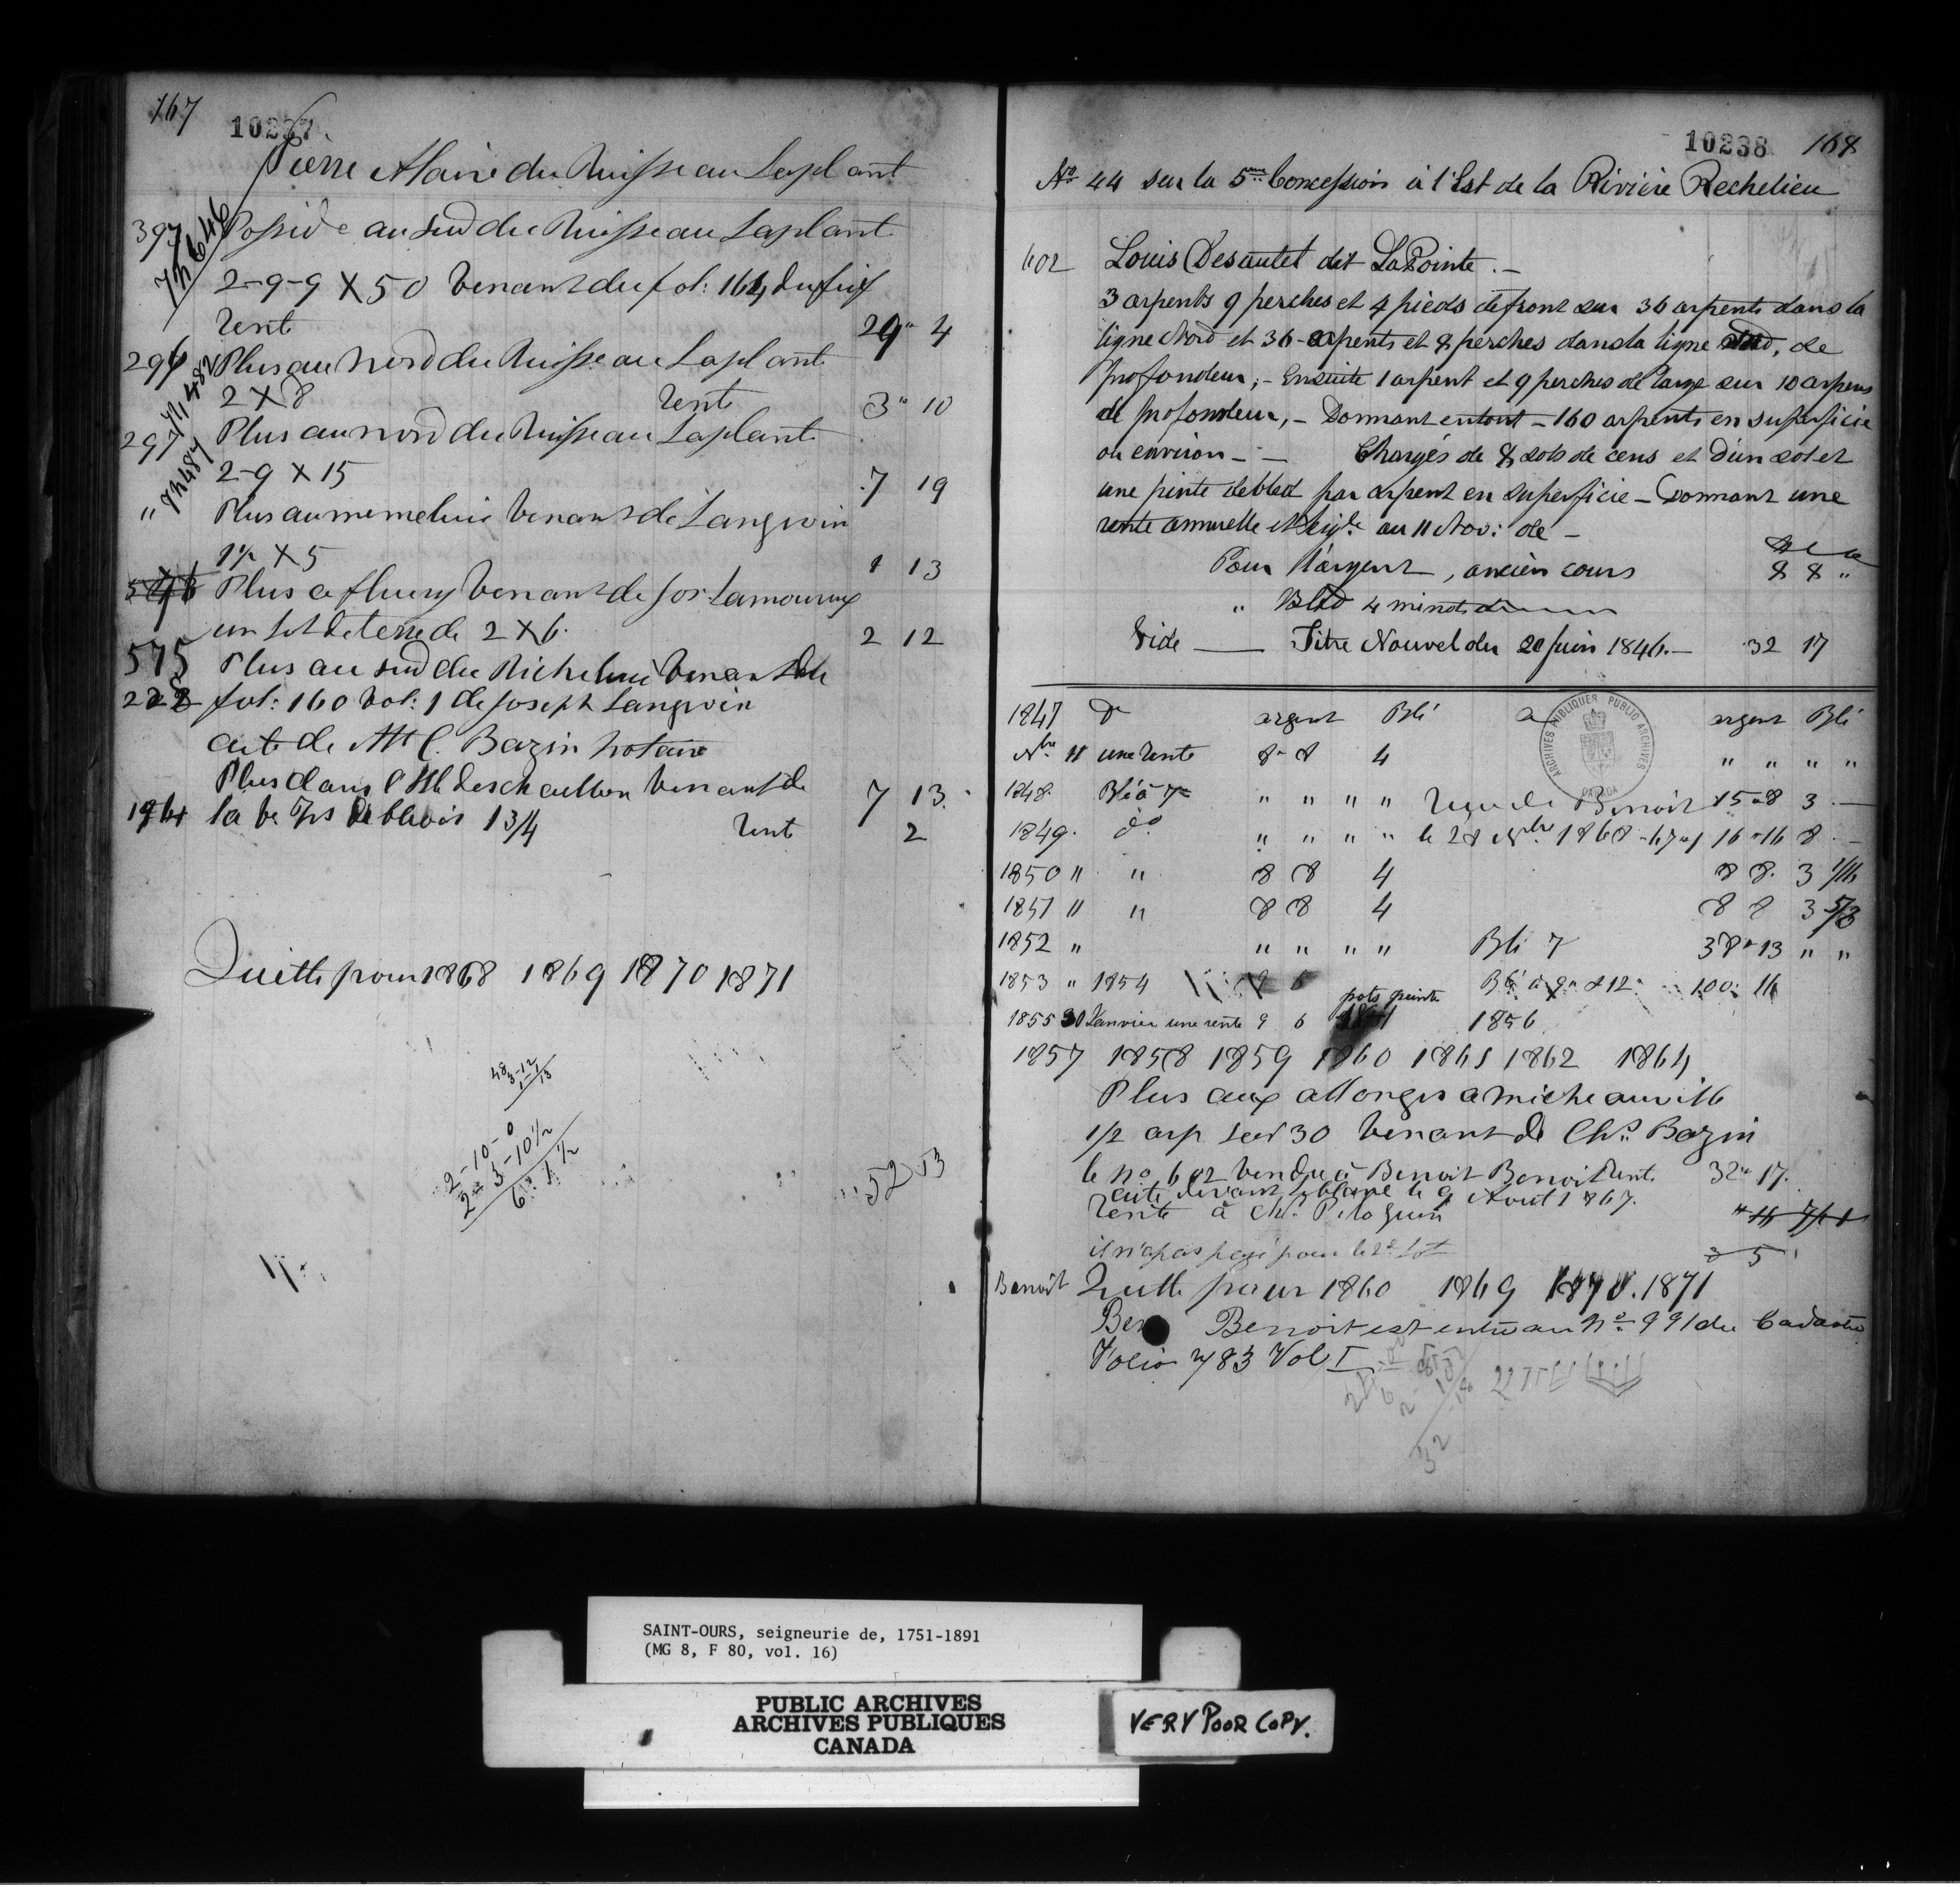 167
10237
Pierre Alaire du Ruisseau Laplant
397 Possède au sud du Ruisseau Laplant
7h646
2-9-9 X 50 Venant du fol: 164 du fief
rent 29" 4
296 Plus au Nord du Ruisseau Laplant
7h482
2 X 8 rent 3" 10
297 Plus au nord du Ruisseau Laplant
7h487
2-9 X 15 7 19
" Plus au meme lieu Venant de Langevin
1½ X 5 1 13
Plus a fleury Venant de Jos. Lamoureux
un lot de terre de 2 X 6. 2 12
575 Plus au sud du Richelieu Venant du
228 fol: 160 Vol: 1 de Joseph Langevin
acte de Mtt C. Bazin Notaire
Plus dans l'Ill deschaillon Venant de 7 13
1964 la Ve Frs 1 3/4 rent 2
Quitte pour 1868 1869 1870 1871
48
3-12
1-1
13
2-10-0
2" 3-10½
6" 1½
52 13
10238 168
No 44 sur la 5me Concession à l'Est de la Rivière Rechelieu
602 Louis Desautet dit LaPointe. -
3 arpents 9 perches et 4 pieds de front sur 36 arpents dans la
ligne Nord et 36 - arpents et 8 perches dans la ligne Sud, de
profondeur; - Ensuite 1 arpent et 9 perches de large sur 10 arpens
de profondeur, - Donnant entout - 160 arpents en superficie
ou environ - - Chargés de 8 sols de cens et d'un sol et
une pinte debled par arpent en superficie - Donnant une
rente annuelle et exigle au 11 Nov: de -
Pour l'argent, ancien cours 8 8 "
" Bled 4 minots
Vide — Titre Nouvel du 20 Juin 1846. — 32 17
1847 Dr argent Blé argent Blé
Nbre 11 une rente 8" 8 4 " " " "
1848. Blé à 7 " " " " reçu de Benoit 15" 8 3 -
1849. do " " " " le 28 Nbre 1868 - 67 16" 16 8 -
1850 " " 8 8 4 8 8. 3 1/16
1851 " " 8 8 4 8 8 3 5/8
1852 " " " " " Blé 7 38" 13 " "
1853 " 1854 9 6 Blé à 9" & 12" 100: 16
pots pinte
1855 30 Janvier une rente 9 6 1856
1857 1858 1859 1860 1861 1862 1864
Plus aux allonges a micheauville
1/2 arp sur 30 Venant de Chs. Bazin
le no 602 Vendu à Benoit Benoit Rent. 32" 17.
acte devant Leblanc le 9 Aout 1867.
rente à Chs. Peloquin
il n'a pas payé pour le 2d lot 5
Benoit Quitte pour 1860 1869 1870. 1871
Ben Benoit est entré au No 991 du Cadastre
Folio 783 Vol I
32
ARCHIVES PUBLIQUES PUBLIC ARCHIVES
CANADA
SAINT-OURS, seigneurie de, 1751-1891
(MG 8, F 80, vol. 16)
PUBLIC ARCHIVES
ARCHIVES PUBLIQUES
CANADA
VERY POOR COPY.